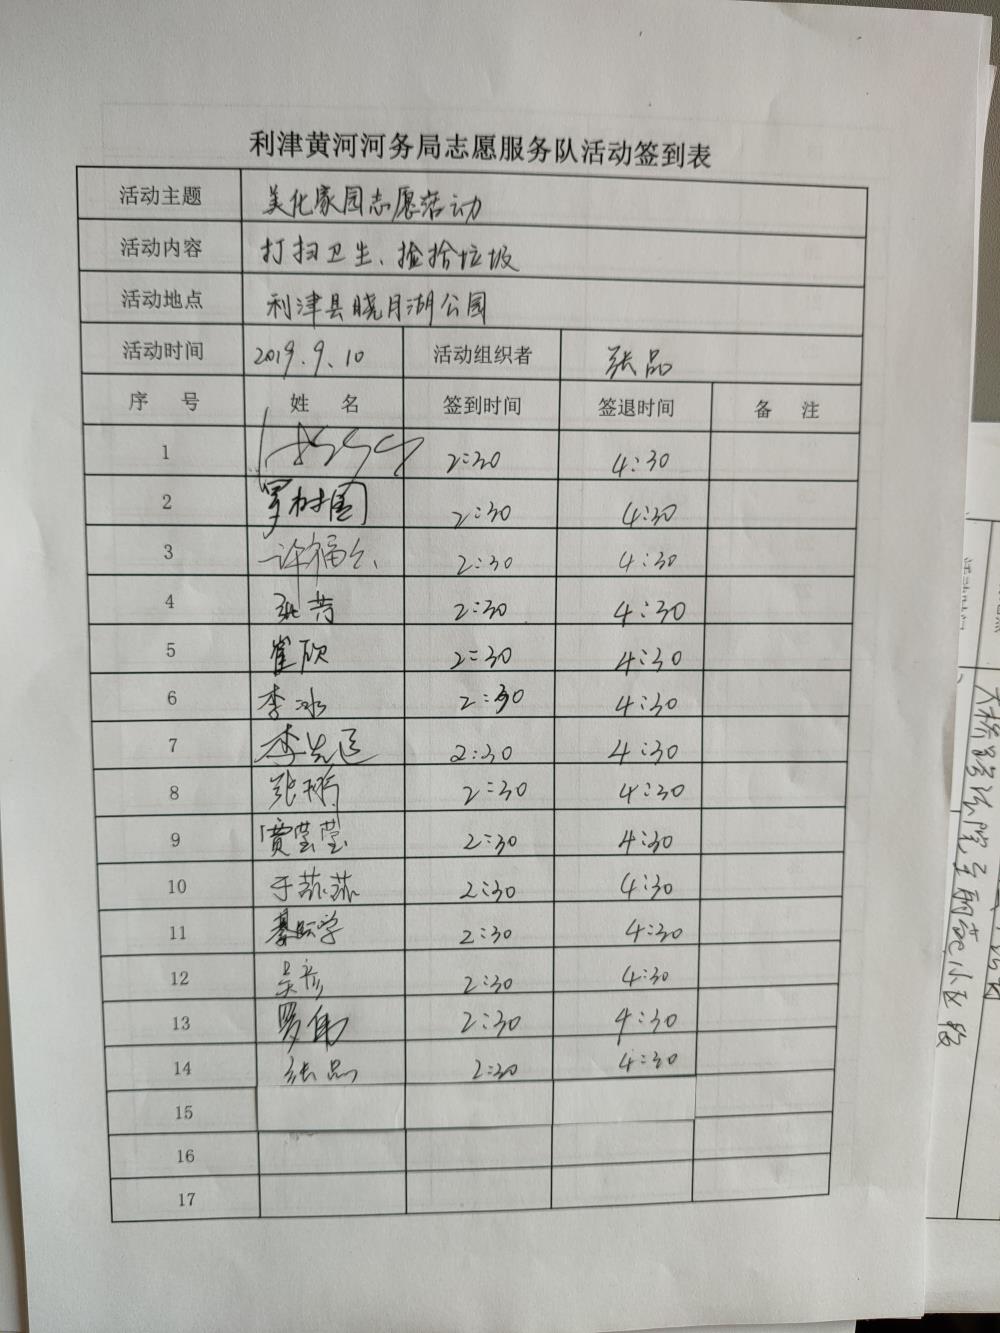 利津黄河河务局志愿服务队活动签到表
活动主题 美化家园志愿活动
活动内容 打扫卫生、捡拾垃圾
活动地点 利津县晓月湖公园
活动时间 2019.9.10 活动组织者 张品
序 号 姓 名 签到时间 签退时间 备 注
1 2:30 4:30
2 罗树国 2:30 4:30
3 2:30 4:30
4 张芳 2:30 4:30
5 崔欣 2:30 4:30
6 李冰 2:30 4:30
7 2:30 4:30
8 2:30 4:30
9 贾莹莹 2:30 4:30
10 于菲菲 2:30 4:30
11 2:30 4:30
12 吴彦 2:30 4:30
13 罗伟 2:30 4:30
14 张品 2:30 4:30
15
16
17